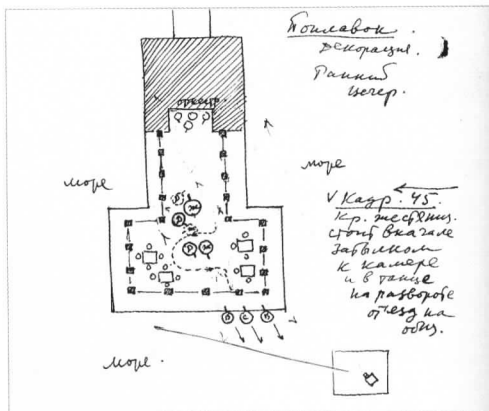 Поплавок.
Декорация.
Ранний
вечер.
оркестр
море
море
V Кадр. 45.
Кр.
стоит вначале
затылком
к камере
и в танце
на развороте
отъезд на
общ.
море.